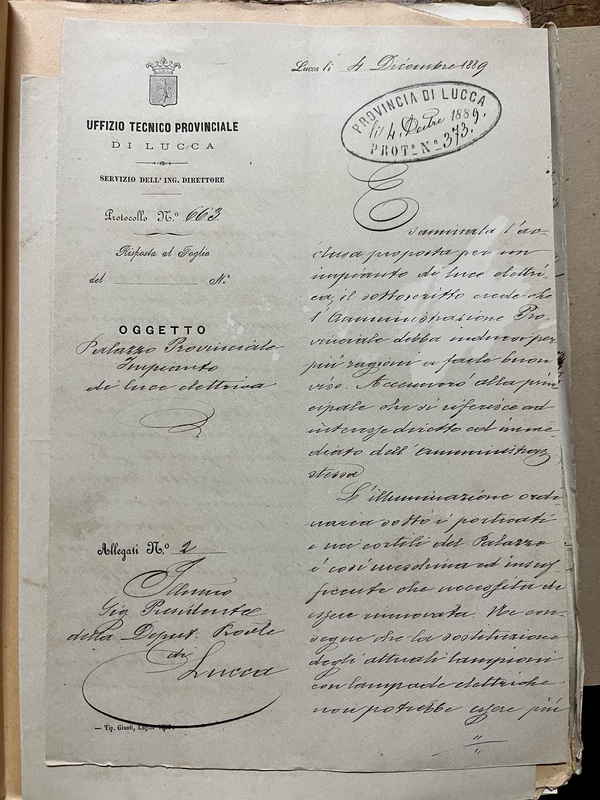 Lucca li 4 Decembre 1889
PROVINCIA DI LUCCA
li 4. Decbre 1889.
PROT.º N.º 373.
UFFIZIO TECNICO PROVINCIALE
DI LUCCA
SERVIZIO DELL'ING. DIRETTORE
Protocollo N.º 663
Risposta al Foglio
del N.º
OGGETTO
Palazzo Provinciale
Impianto
di luce elettrica
Allegati N.º 2
Illmo
Sig Presidente
della Deput. Provle
di
Lucca
— Tip. Giusti, Luglio
Esaminata l'ac-
clusa proposta per un
impianto di luce elettri-
ca, il sottoscritto crede che
l'Amministrazione Pro-
vinciale debba indursi per
più ragioni a farle buon
viso. Accennerò alla prin
cipale che si riferisce ad
interesse diretto ed imme-
diato dell'Amministraz
stessa
L'illuminazione ordi
naria sotto i porticati
e nei cortili del Palazzo
è così meschina ed insuf
ficente che necessita di
essere rinnovata. Ne con-
segue che la sostituzione
degli attuali lampioni
con lampade elettriche
non potrebbe essere più